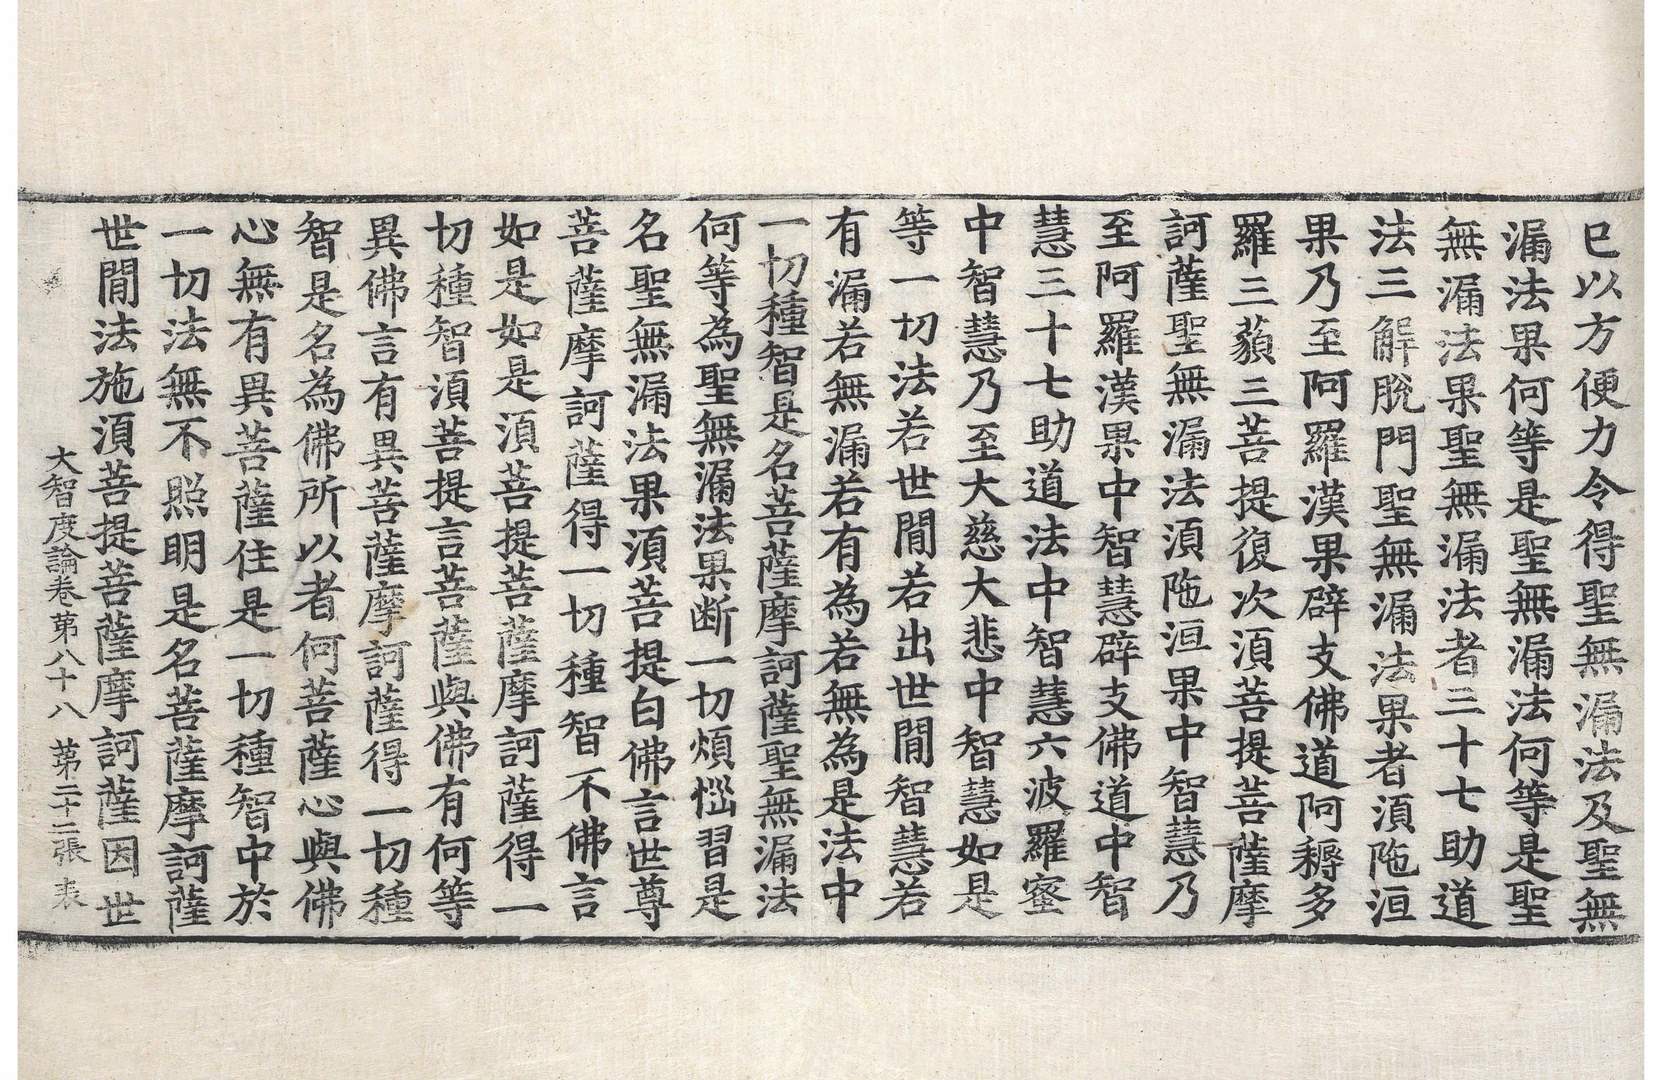 已以方便力令得聖無漏法及聖無
漏法果何等是聖無漏法何等是聖
無漏法果聖無漏法者三十七助道
法三解脫門聖無漏法果者湏陁洹
果乃至阿羅漢果辟支佛道阿耨多
羅三藐三菩提復次湏菩提菩薩摩
訶薩聖無漏法湏陁洹果中智慧乃
至阿羅漢果中智慧辟支佛道中智
慧三十七助道法中智慧六波羅蜜
中智慧乃至大慈大悲中智慧如是
等一切法若世閒若出世閒智慧若
有漏若無漏若有為若無為是法中
一切種智是名菩薩摩訶薩聖無漏法
何等為聖無漏法果断一切煩惱習是
名聖無漏法果湏菩提白佛言世尊
菩薩摩訶薩得一切種智不佛言
如是如是湏菩提菩薩摩訶薩得一
切種智湏菩提言菩薩與佛有何等
異佛言有異菩薩摩訶薩得一切種
智是名為佛所以者何菩薩心與佛
心無有異菩薩住是一切種智中於
一切法無不照明是名菩薩摩訶薩
世閒法施湏菩提菩薩摩訶薩因世
大智度論卷第八十八 第二十二張 表